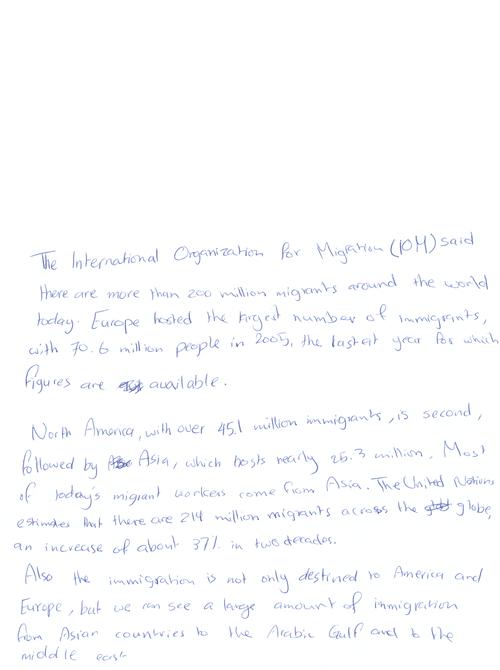 The International Organization for Migration (IOM) said
there are more than 200 million migrants around the world
today. Europe hosted the largest number of immigrants,
with 70.6 million people in 2005, the lastest year for which
figures are available.
North America, with over 45.1 million immigrants, is second,
followed by Asia, which hosts nearly 25.3 million. Most
of today's migrant workers come from Asia. The United Nations
estimates that there are 214 million migrants across the globe,
an increase of about 37% in two decades.
Also the immigration is not only destined to America and
Europe, but we can see a large amount of inmigration
from Asian countries to the Arabic Gulf and to the
middle east